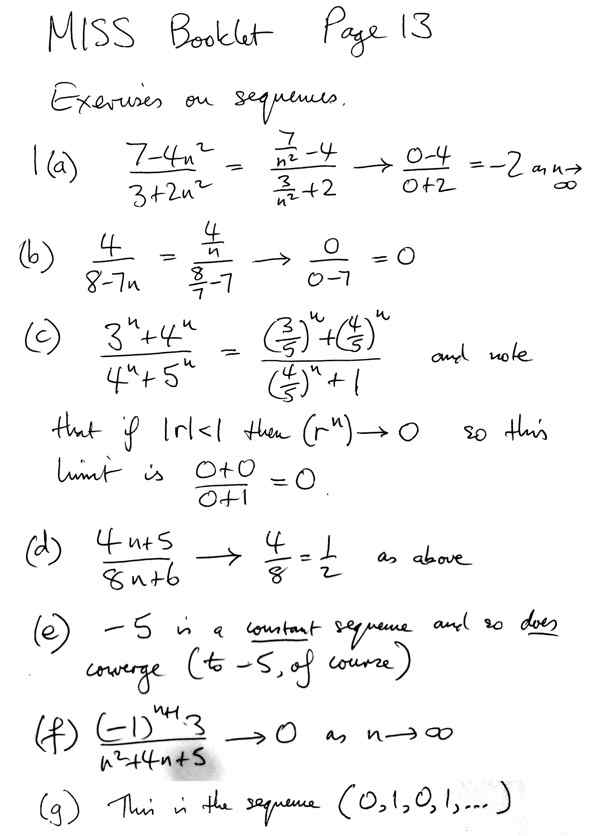 MISS Booklet Page 13
Exercises on sequences.
1(a) (7-4n²)/(3+2n²) = (7/n² - 4)/(3/n² + 2) → (0-4)/(0+2) = -2 as n→∞
(b) 4/(8-7n) = (4/n)/(8/7 - 7) → 0/(0-7) = 0
(c) (3ⁿ+4ⁿ)/(4ⁿ+5ⁿ) = ((3/5)ⁿ+(4/5)ⁿ)/((4/5)ⁿ+1) and note
that if |r|<1 then (rⁿ) → 0 so this
limit is (0+0)/(0+1) = 0.
(d) (4n+5)/(8n+6) → 4/8 = 1/2 as above
(e) -5 is a constant sequence and so does
converge (to -5, of course)
(f) ((-1)ⁿ⁺¹·3)/(n²+4n+5) → 0 as n → ∞
(g) This is the sequence (0,1,0,1,...)